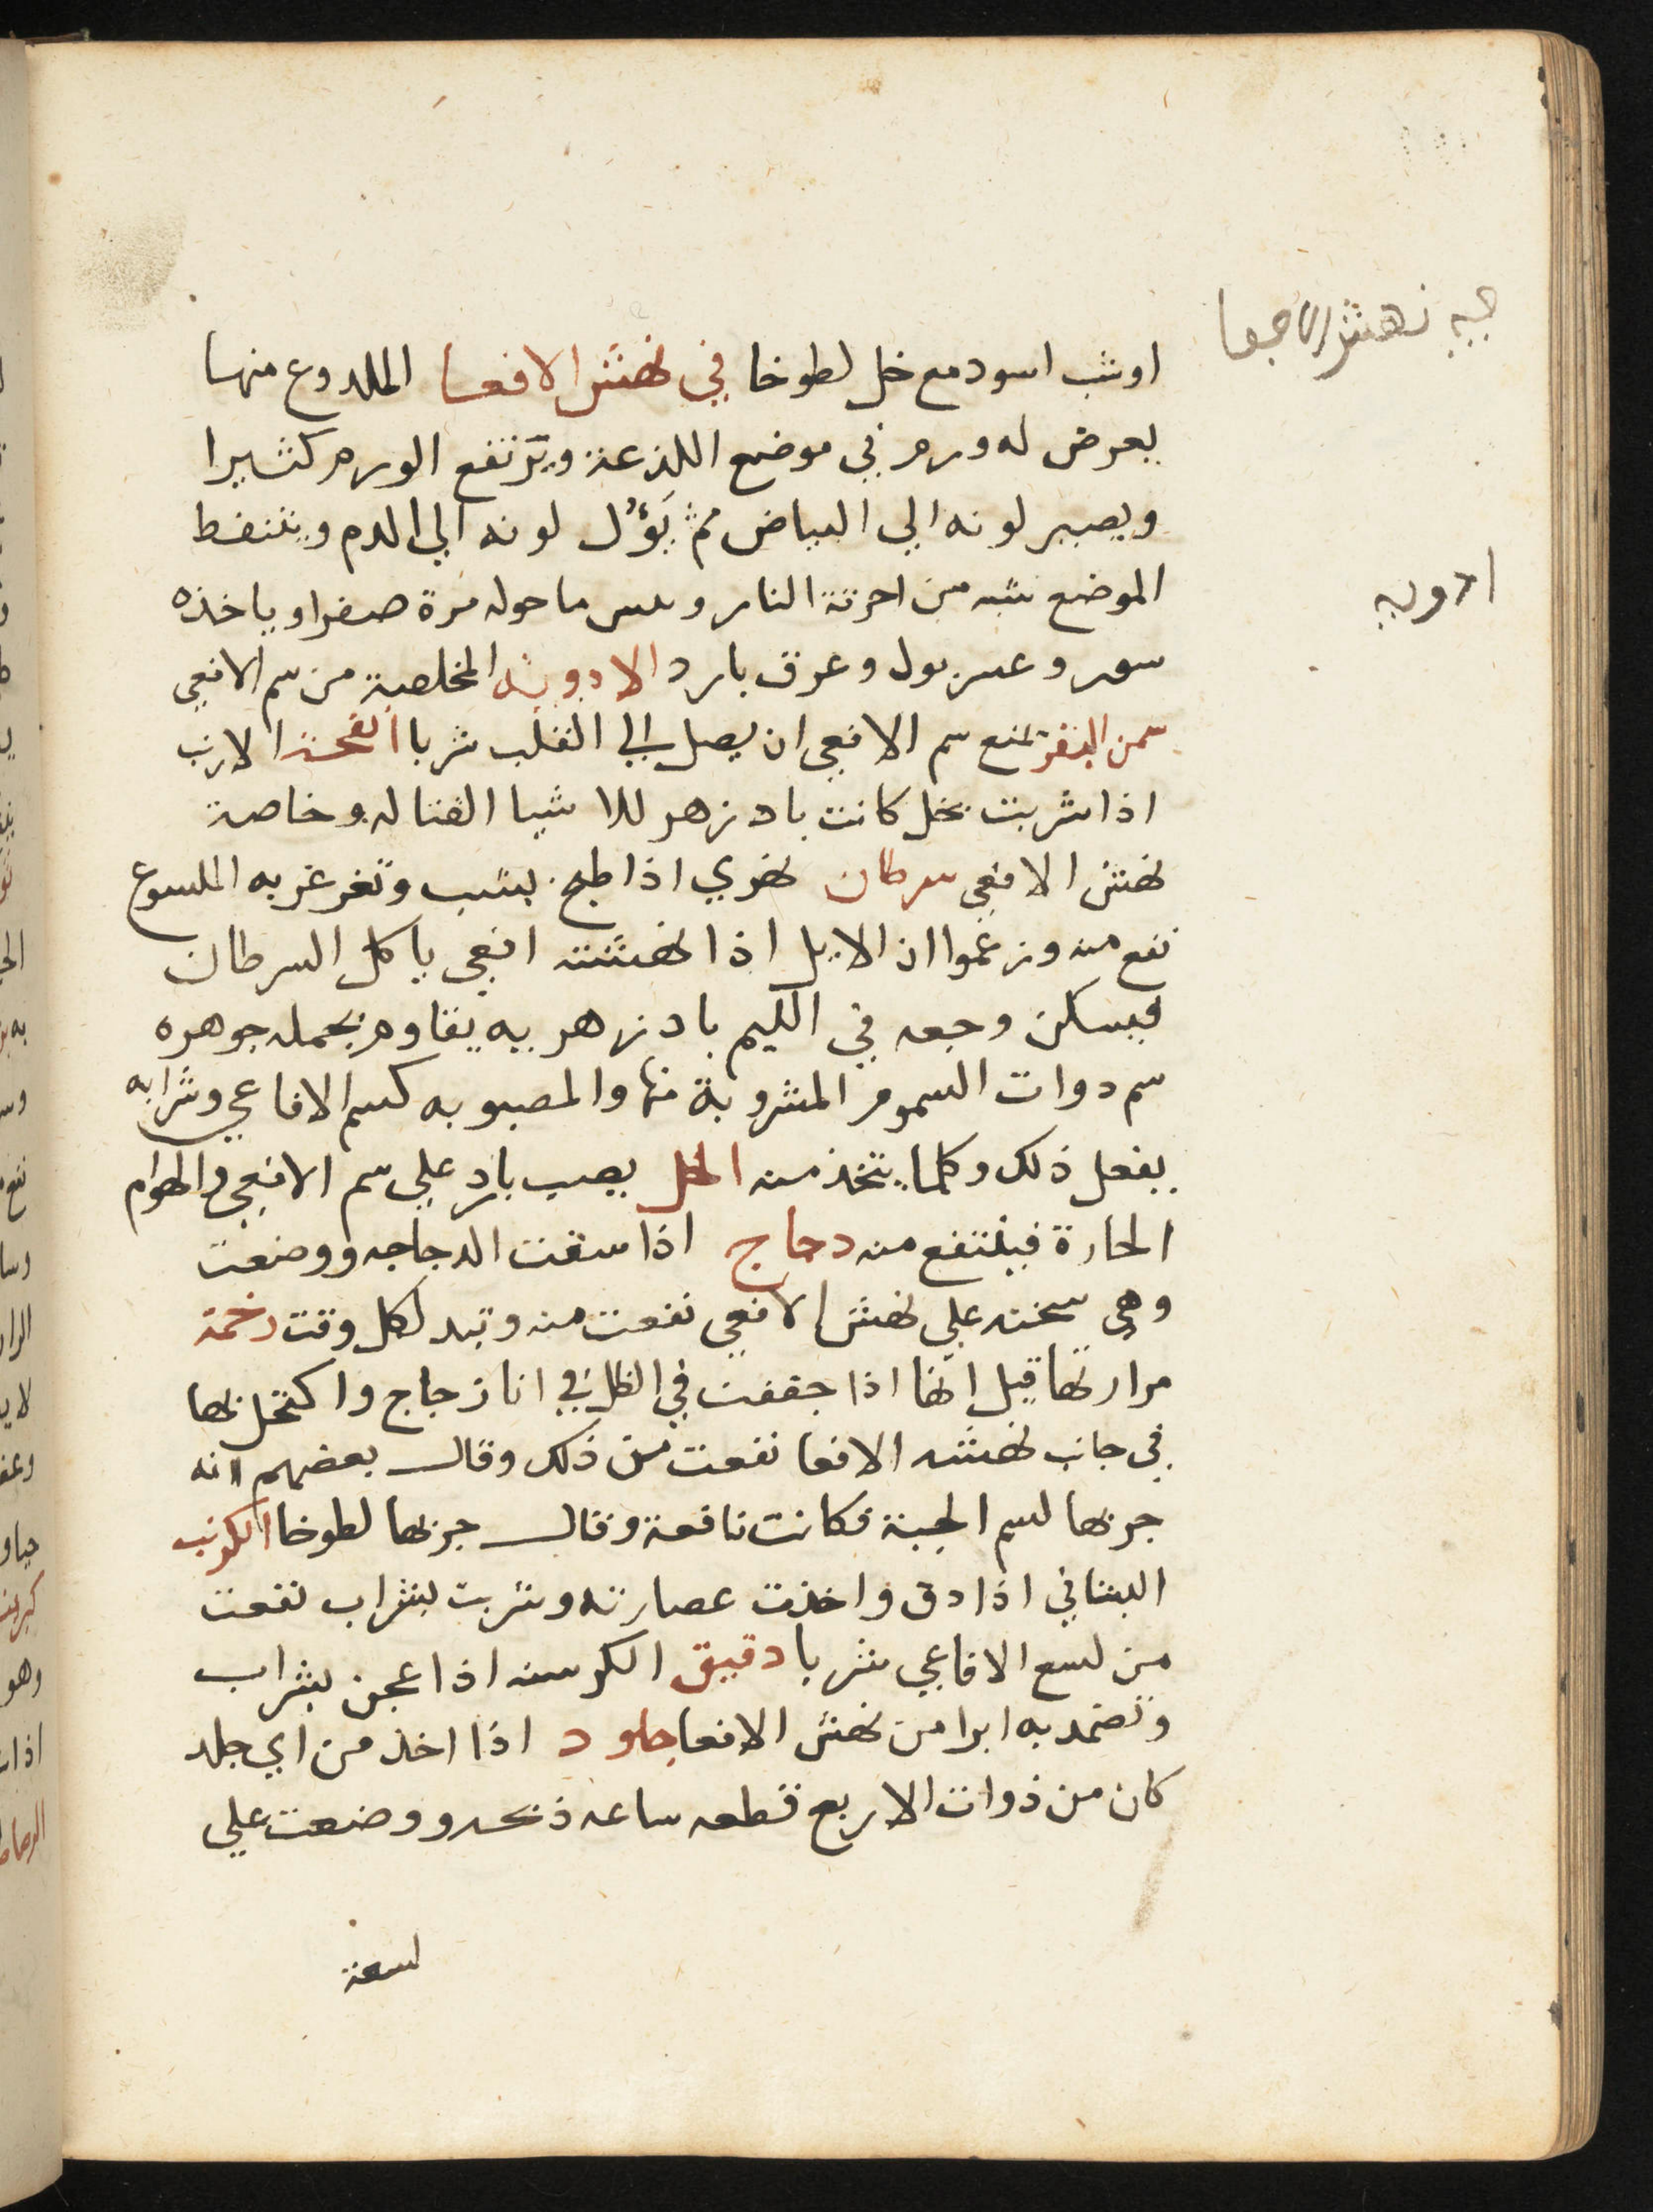 اوشب اسود مع خل لطوخا في نهش الافعا الملدوغ منها
يعرض له ورم في موضع اللذعة ويرتفع الورم كثيرا
ويصير لونه الي البياض ثم يَؤُل لونه الي الدم ويتنفط
الموضع شبه من احرقته النار ما حوله مرة صفرا وياخذه
وعسر بول وعرق بارد الادوية المخلصة من سم الافعي
سمن البقر يمنع سم الافعي ان يصل الي القلب شربا انفحة الارنب
اذا شربت بخل كانت بادزهر للاشيا القتاله وخاصة
نهش الافعي سرطان نهري اذا طبخ بشب وتغرغر به الملسوع
نفع منه وزعموا ان الايل اذا نهشته افعي ياكل السرطان
فيسكن وجعه في الكيم بادزهريه يقاوم بجمله جوهره
سم دوات السموم المشروبة منها والمصبوبه كسم الافاعي وشرابه
يفعل ذلك وكلما يتخذ منه الخل يصب بارد علي سم الافعي والهوام
الحارة فينتفع منه دجاج اذا سقت الدجاجه ووضعت
وهي سخنه علي نهش الافعي نفعت منه وتبدل كل وقت رخمة
مرارتها قيل انها اذا جففت في الظل في انا زجاج واكتحل بها
في جانب نهشه الافعا نفعت من ذلك وقال بعضهم انه
جربها لسم الحية فكانت نافعة وقال جربها لطوخا الكرنب
البستاني اذا دق واخذت عصارته وشربت بشراب نفعت
من لسع الافاعي شربا دقيق الكرسنه اذا عجن بشراب
وتضمد به ابرا من نهش الافعا جلود اذا اخذ من اي جلد
كان من ذوات الاربع قطعه ساعه ذبحه ووضعت علي
لسعة
نهش الافعا
ادويه